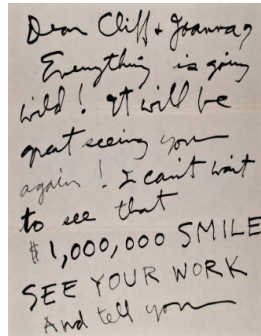 Dear Cliff + Joanna,
Everything is going
wild! It will be
great seeing you
again! I can't wait
to see that
$1,000,000 SMILE
SEE YOUR WORK
And tell you